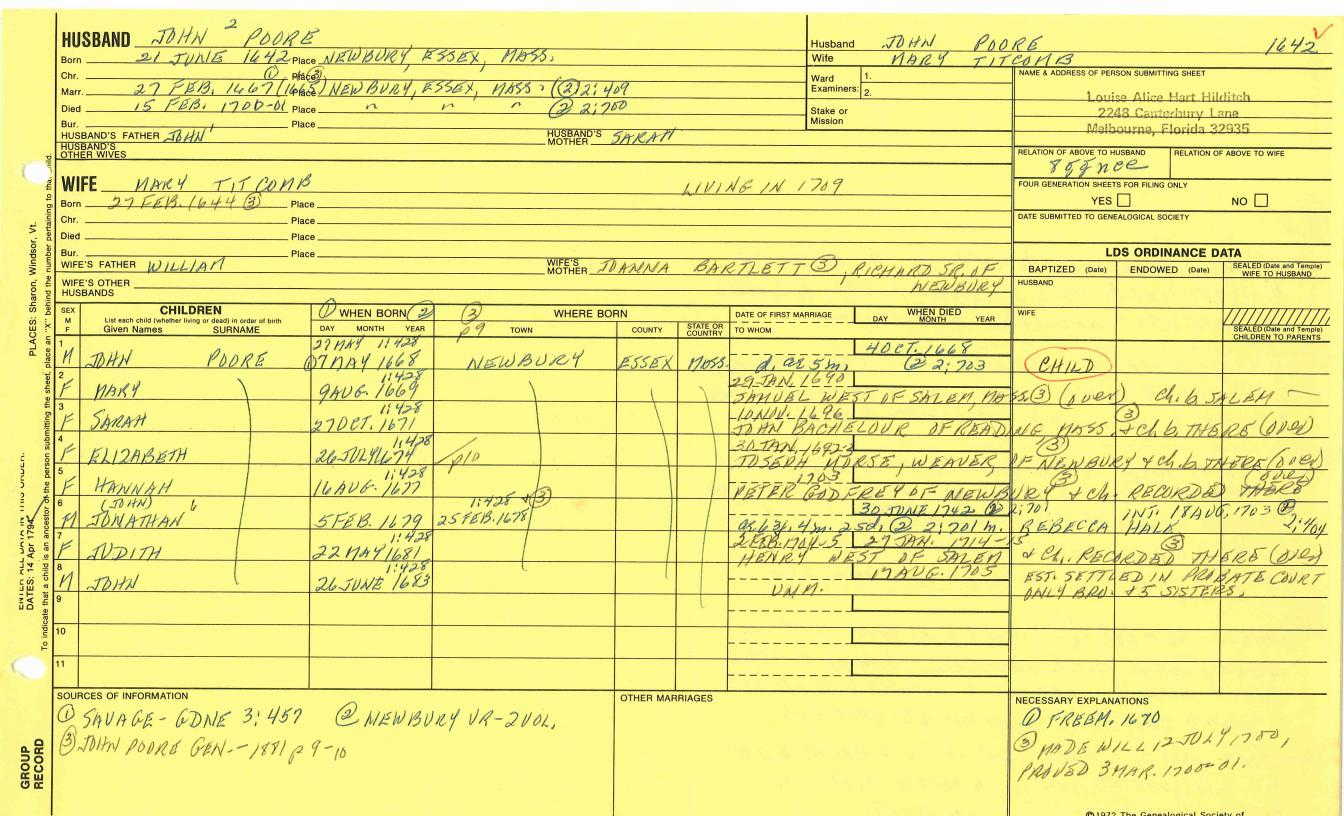 HUSBAND JOHN 2 POORE
Born 21 JUNE 1642 Place NEWBURY, ESSEX, MASS.
Chr. Place
Marr. 27 FEB. 1667 ① (1665) ③ Place NEWBURY, ESSEX, MASS. (② 2:409
Died 15 FEB. 1700-01 Place " " " ② 2:700
Bur. Place
HUSBAND'S FATHER JOHN 1 HUSBAND'S MOTHER SARAH
HUSBAND'S OTHER WIVES
Husband JOHN POORE 1642
Wife MARY TITCOMB
Ward Examiners: 1.
2.
Stake or Mission
NAME & ADDRESS OF PERSON SUBMITTING SHEET
Louise Alice Hart Hilditch
2248 Canterbury Lane
Melbourne, Florida 32935
RELATION OF ABOVE TO HUSBAND RELATION OF ABOVE TO WIFE
8ggnce
FOUR GENERATION SHEETS FOR FILING ONLY
YES NO
DATE SUBMITTED TO GENEALOGICAL SOCIETY
WIFE MARY TITCOMB LIVING IN 1709
Born 27 FEB. 1644 ③ Place
Chr. Place
Died Place
Bur. Place
WIFE'S FATHER WILLIAM WIFE'S MOTHER JOANNA BARTLETT ③, RICHARD SR. OF NEWBURY
WIFE'S OTHER HUSBANDS
LDS ORDINANCE DATA
BAPTIZED (Date) ENDOWED (Date) SEALED (Date and Temple) WIFE TO HUSBAND
HUSBAND
WIFE
SEALED (Date and Temple) CHILDREN TO PARENTS
SEX M F
CHILDREN
List each child (whether living or dead) in order of birth
Given Names SURNAME
① WHEN BORN ②
DAY MONTH YEAR
② p9 WHERE BORN
TOWN COUNTY STATE OR COUNTRY
DATE OF FIRST MARRIAGE
TO WHOM
WHEN DIED
DAY MONTH YEAR
27 MAY 1:428 4 OCT. 1668
1 M JOHN POORE ① 7 MAY 1668 NEWBURY ESSEX MASS. d. ae 5m. ② 2:703 CHILD
1:428 29 JAN. 1690
2 F MARY 9 AUG. 1669 SAMUEL WEST OF SALEM, MASS. ③ (over) Ch. b. SALEM
10 NOV. 1696 ③
3 F SARAH 27 OCT. 1671 JOHN BACHELOUR OF READING MASS. + ch b. THERE (over)
1:428 30 JAN. 1692-3 ③
4 F ELIZABETH 26 JULY 1674 p10 JOSEPH MORSE, WEAVER, OF NEWBURY & ch b. THERE (over)
1:428 1703 ③ (over)
5 F HANNAH 16 AUG. 1677 PETER GODFREY OF NEWBURY + ch. RECORDED THERE
(JOHN) 1:428 + ③ 30 JUNE 1742 ② 2:701 INT. 18 AUG. 1703 ②
6 M JONATHAN 5 FEB. 1679 25 FEB. 1678 ae 63y. 4m. 25d. ② 2:701 m. REBECCA HALE 2:404
1:428 2 FEB. 1704-5 27 JAN. 1714-15 ③
7 F JUDITH 22 MAY 1681 HENRY WEST OF SALEM & Ch. RECORDED THERE (over)
1:428 17 AUG. 1705 EST. SETTLED IN PROBATE COURT
8 M JOHN 26 JUNE 1683 UNM. ONLY BRO. + 5 SISTERS.
9
10
11
SOURCES OF INFORMATION
① SAVAGE - GDNE 3:457 ② NEWBURY VR - 2 VOL.
③ JOHN POORE GEN. - 1881 p 9-10
OTHER MARRIAGES
NECESSARY EXPLANATIONS
① FREEM. 1670
③ MADE WILL 12 JULY 1700,
PROVED 3 MAR. 1700-01.
©1972 The Genealogical Society of
PLACES: Sharon, Windsor, Vt.
ENTER ALL DATA IN THIS ORDER:
DATES: 14 Apr 1794
To indicate that a child is an ancestor of the person submitting the sheet, place an "X" behind the number pertaining to that child.
GROUP RECORD